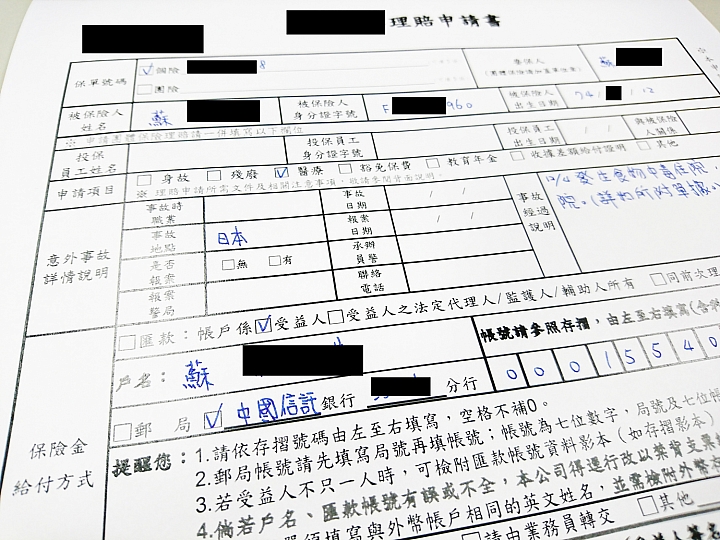 理賠申請書
保單號碼 ✓個險 8 要保人 蘇
(團體保險填要保單位章)
□團險
被保險人姓名 蘇 被保險人身分證字號 F 960 被保險人出生日期 74/ /12
※ 申請團體保險理賠請一併填寫以下欄位
投保員工姓名 投保員工身分證字號 投保員工出生日期 / / 與被保險人關係
申請項目 □身故 □殘廢 ☑醫療 □豁免保費 □教育年金 □收據差額給付證明 □其他
※ 理賠申請所需文件及相關注意事項,敬請參閱背面說明。
意外事故詳情說明
事故時職業 事故日期 / /
事故地點 日本 報案日期 / /
是否報案 □無 □有 承辦員警
報案警局 聯絡電話
事故經過說明 發生食物中毒住院,
院。(詳如所附單據)
保險金給付方式
□匯款:帳戶係☑受益人□受益人之法定代理人/監護人/輔助人所有 □同前次理
戶名:蘇 帳號請參照存摺,由左至右填寫(含
0 0 0 1 5 5 4 0
□郵局 ☑中國信託銀行 分行
提醒您:1.請依存摺號碼由左至右填寫,空格不補0。
2.郵局帳號請先填寫局號再填帳號;帳號為七位數字,局號及七位帳
3.若受益人不只一人時,可檢附匯款帳號資料影本(如存摺影本)
4.倘若戶名、匯款帳號有誤或不全,本公司得逕行改以禁背支票
須填寫與外幣帳戶相同的英文姓名,並需檢附外幣存
□請由業務員轉交 □其他